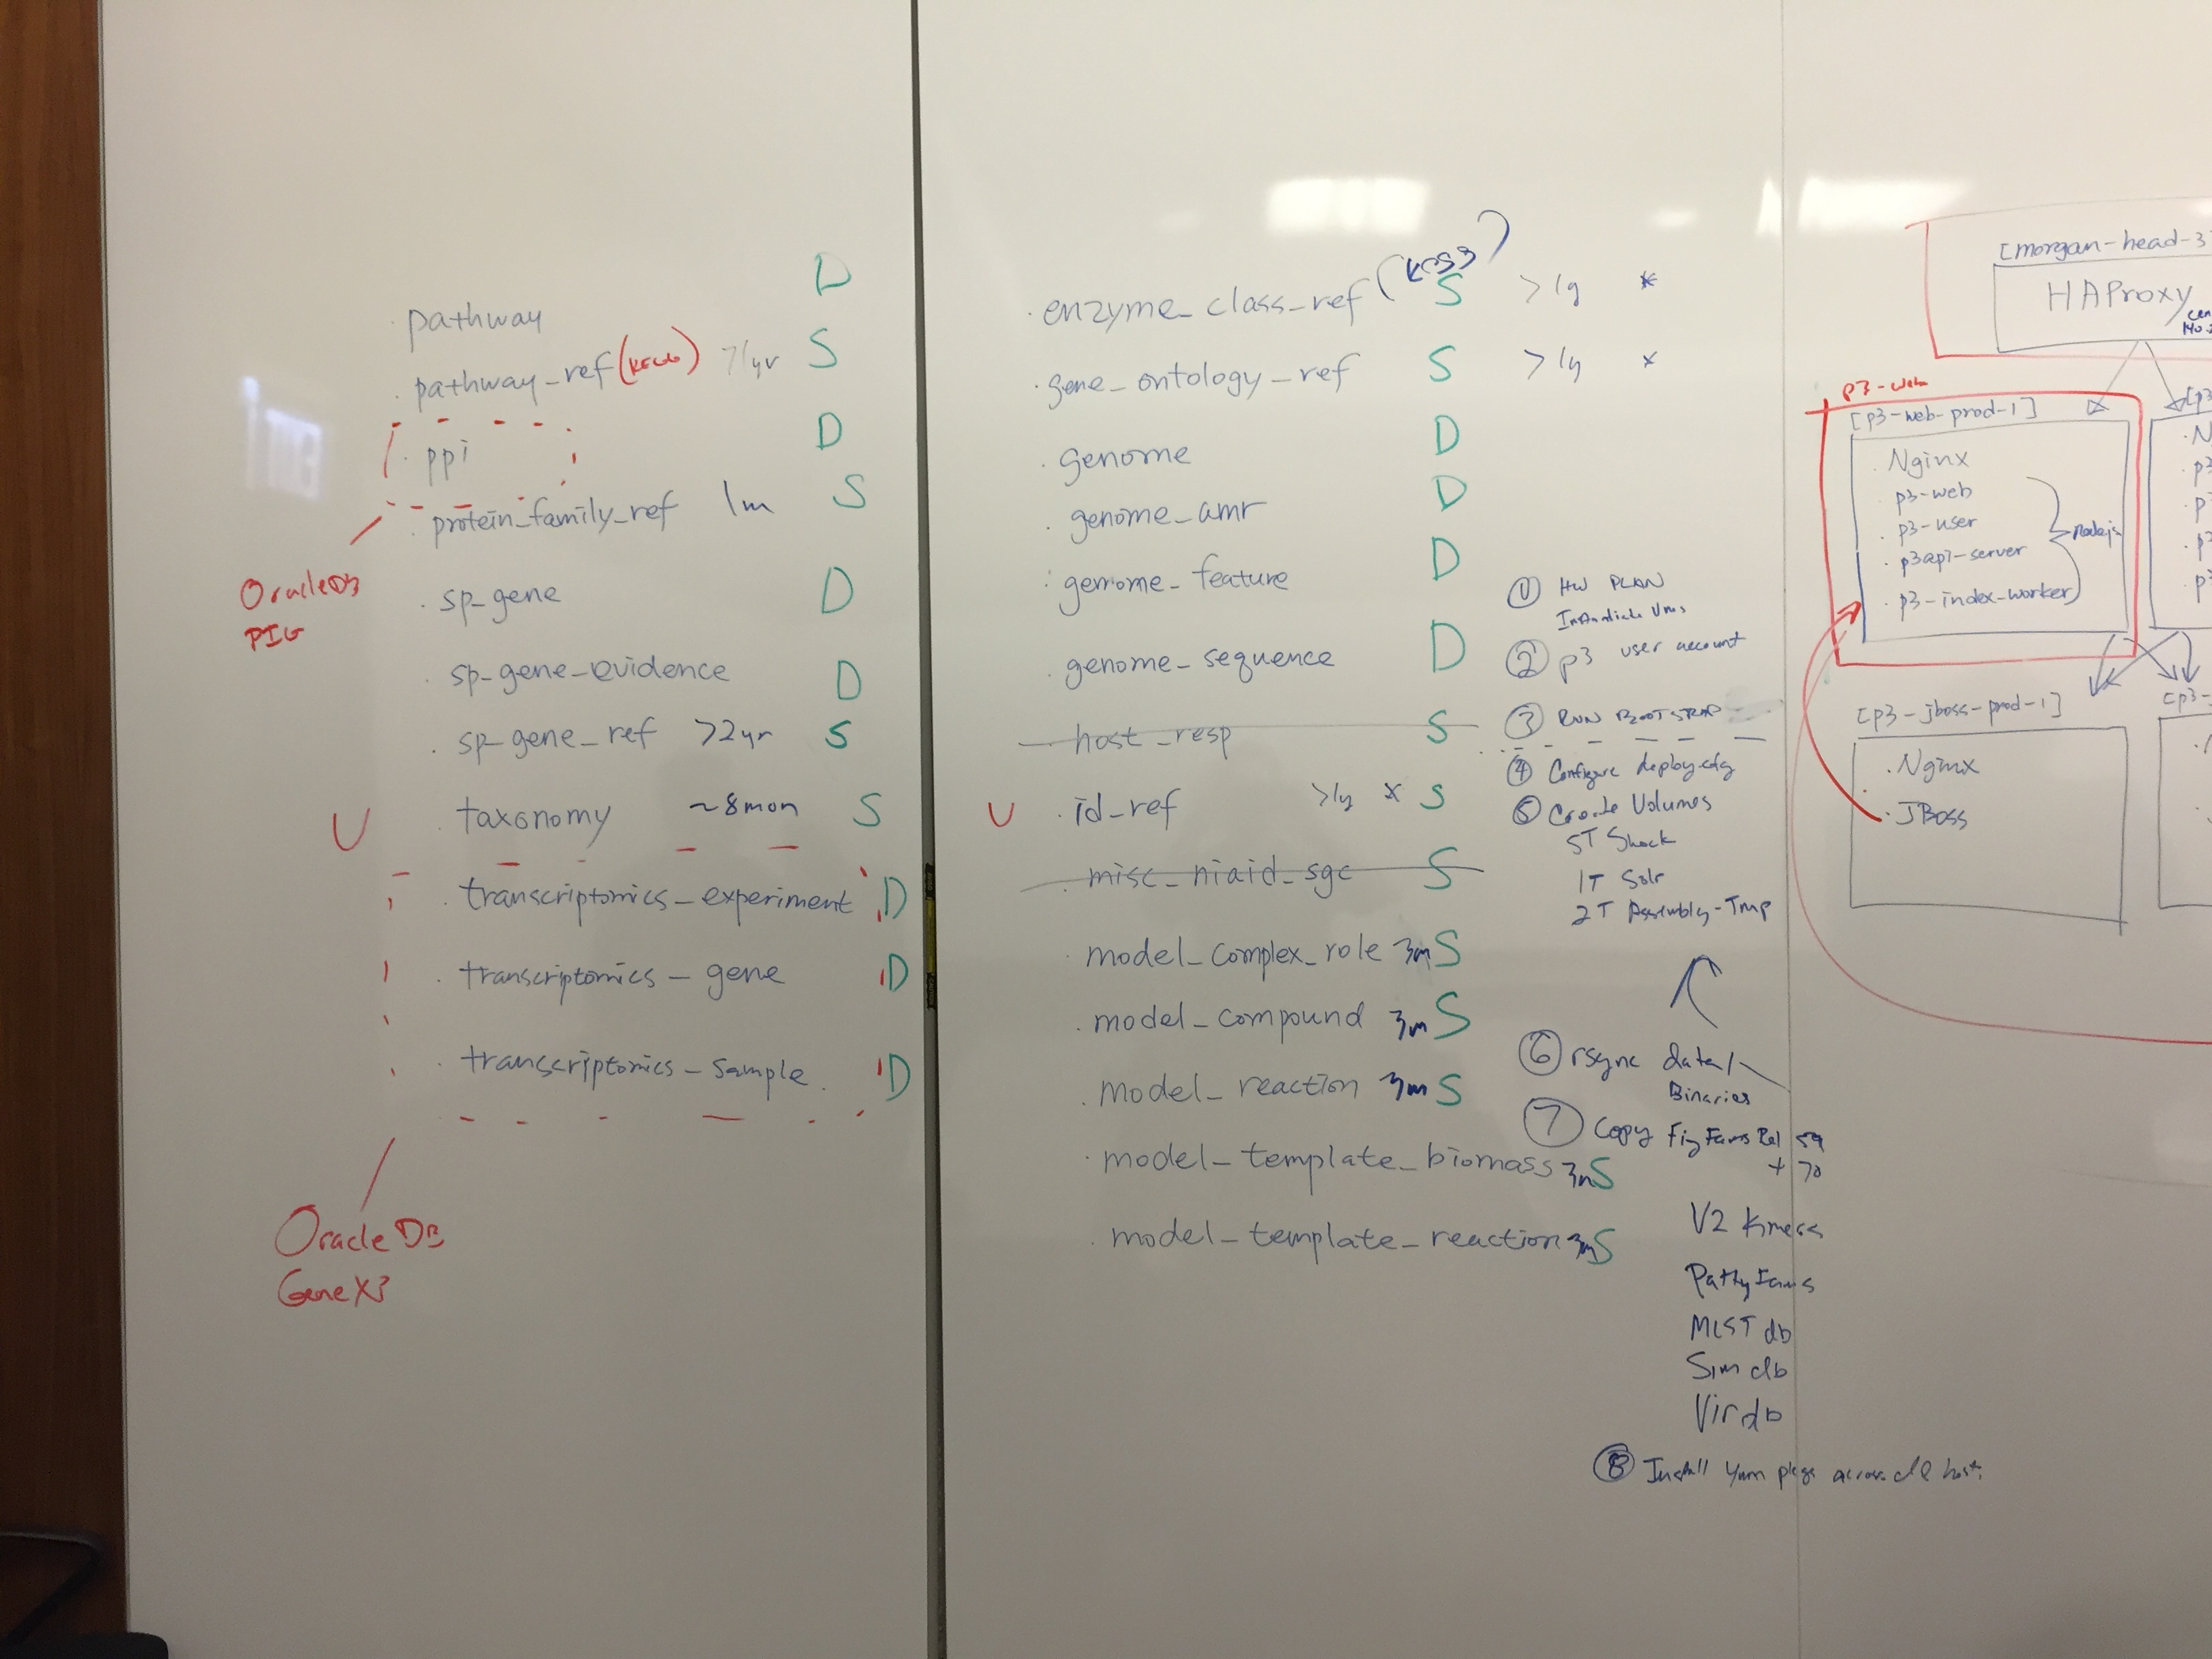 · pathway D
· pathway_ref (KEGG) >1yr S
· ppi D
· protein_family_ref 1m S
OracleDB
PIG
· sp_gene D
· sp_gene_evidence D
· sp_gene_ref >2yr S
U · taxonomy ~8mon S
· transcriptomics_experiment D
· transcriptomics_gene D
· transcriptomics_sample D
OracleDB
GeneXB
· enzyme_class_ref S >1y *
· gene_ontology_ref S >1y x
· genome D
· genome_amr D
· genome_feature D
· genome_sequence D
· host_resp S
U · id_ref >1y x S
· misc_niaid_sgc S
· model_complex_role 3m S
· model_compound 3m S
· model_reaction 3m S
· model_template_biomass 3m S
· model_template_reaction 3m S
① HW PLAN
Vms
② p3 user account
③ RUN BOOTSTRAP
④ Configure deploy.cfg
⑤ Create Volumes
5T Shock
1T Solr
2T Assembly-Tmp
⑥ rsync data/
Binaries
⑦ Copy FigFams Rel 59
+ 70
V2 Kmers
PattyFams
MLST db
Sim db
Vir db
⑧ Install Yum pkgs across all hosts.
[morgan-head-3]
HAProxy
p3-web
[p3-web-prod-1]
· Nginx
· p3-web
· p3-user
· p3api-server
· p3-index-worker
} nodejs
[p3-jboss-prod-1]
· Nginx
· JBoss